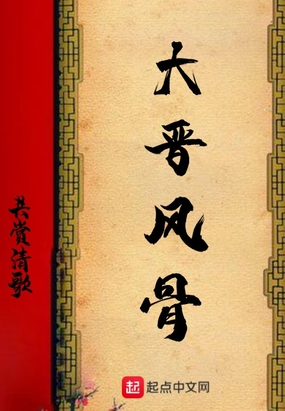 大晋风骨
共赏清歌
起 起点中文网